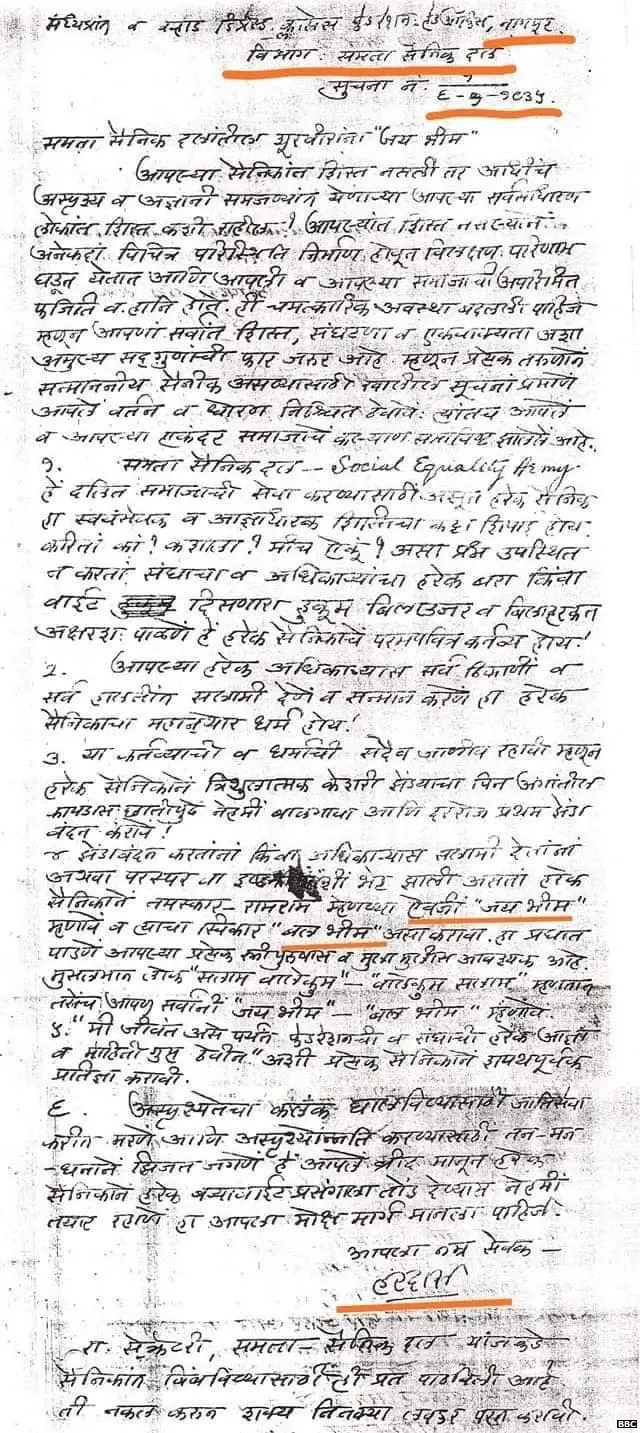 मध्यप्रांत व वऱ्हाड डिप्रेस्ड क्लासेस फेडरेशन हेड ऑफिस, नागपूर
विभाग समता सैनिक दल
सूचना नं. १
६-७-१९३५
समता सैनिक दलांतील शूरवीरांना "जय भीम"
आपल्या सैनिकांत शिस्त नसली तर आधीच
अस्पृश्य व अज्ञानी समजण्यांत येणाऱ्या आपल्या सर्वसाधारण
लोकांत शिस्त कशी राहील? आपल्यांत शिस्त नसल्यानें
अनेकदां विचित्र परिस्थिति निर्माण होवून विलक्षण परिणाम
घडून येतात आणि आपली व आपल्या समाजाची अपरिमित
फजिति व हानि होते. ही चमत्कारिक अवस्था बदलली पाहिजे
म्हणून आपणां सर्वांत शिस्त, संघटणा व एकवाक्यता अशा
अमुल्य सद्गुणांची फार जरूर आहे. म्हणून प्रत्येक तरुणानें
सन्माननीय सैनीक असण्यासाठीं खालील सूचनां प्रमाणें
आपलें वर्तन व धोरण निश्चित ठेवावे. त्यांतच आपलें
व आपल्या एकंदर समाजाचें कल्याण समाविष्ट झालेलें आहे.
१. समता सैनिक दल -- Social Equality Army
हें दलित समाजाची सेवा करण्यासाठीं असून हरेक सैनिक
हा स्वयंसेवक व आज्ञाधारक शिस्तीचा कट्टा शिपाई होय.
करितां कां? कशाला? मीच ऐकूं? असा प्रश्न उपस्थित
न करतां संघाचा व अधिकाऱ्यांचा हरेक बरा किंवा
वाईट दिसणारा हुकूम बिलाउजर व बिलाहरकत
अक्षरशः पाळणें हें हरेक सैनिकाचें परमपवित्र कर्तव्य होय!
2. आपल्या हरेक अधिकाऱ्यास सर्व ठिकाणीं व
सर्व हालतींत सलामी देणें व सन्मान करणें हा हरेक
सैनिकाचा महान् थोर धर्म होय!
३. या कर्तव्याची व धर्माची सदैव जाणीव रहावी म्हणून
हरेक सैनिकानें त्रिशुलात्मक केशरी झेंड्याचा पिन अंगांतील
कापडास छातीपुढें नेहमीं बाळगावा आणि दररोज प्रथम झेंडा
वंदन करावें!
४ झेंडावंदन करतांना किंवा अधिकाऱ्यास सलामी देतांनां
अथवा परस्पर वा भेट झाली असतां हरेक
सैनिकानें नमस्कार- रामराम म्हणण्या ऐवजीं "जय भीम"
म्हणावें व त्याचा स्विकार "बल भीम" असा करावा. हा प्रघात
पाडणें आपल्या प्रत्येक स्त्रीपुरुषास व मुला मुलींस आवश्यक आहे.
मुसलमान लोक "सलाम वालेकुम" – "वालेकुम सलाम" म्हणतात
तसेंच आपण सर्वांनी "जय भीम" – "बल भीम" म्हणावे.
५. "मी जीवंत असे पर्यंत फेडरेशनची व संघाची हरेक आज्ञा
व माहिती गुप्त ठेवीन" अशी प्रत्येक सैनिकानें शपथपूर्वक
प्रतिज्ञा करावी.
६. अस्पृश्यतेचा कलंक घालविण्यासाठीं जातिसेवा
करीत मरणें आणि अस्पृश्योन्नति करण्यासाठीं तन-मन
-धनानें झिजत जगणें हें आपलें ब्रीद मानून हरेक
सैनिकानें हरेक बऱ्यावाईट प्रसंगाला तोंड देण्यास नेहमीं
तयार रहाणें हा आपला मोक्ष मार्ग मानला पाहिजे.
आपला नम्र सेवक –
हरदास
रा. सेक्रेटरी, समता – सैनिक दल यांजकडे
सैनिकांत बिंबविण्यासाठीं ही प्रत पाठविली आहे
ती नक्कल करून शक्य तितक्या लवकर परत करावी.
BBC